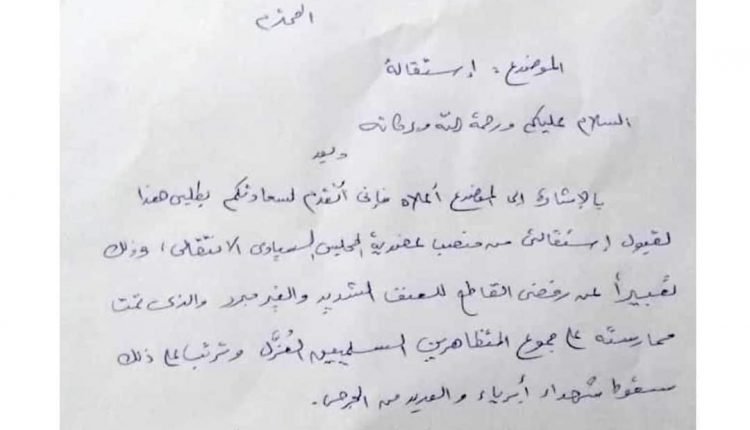 المحترم
الموضوع : إستقالة
السلام عليكم ورحمة الله وبركاته
وبعد
بالإشارة الى الموضوع أعلاه فإنى أتقدم لسعادتكم بطلبى هذا
لقبول إستقالتى من منصب عضوية المجلس السيادى الانتقالى ، وذلك
تعبيراً عن رفضى القاطع للعنف الشديد والغير مبرر والذى تمت
ممارسته على جموع المتظاهرين السلميين العُزَّل وترتب على ذلك
سقوط شهداء أبرياء و العديد من الجرحى .